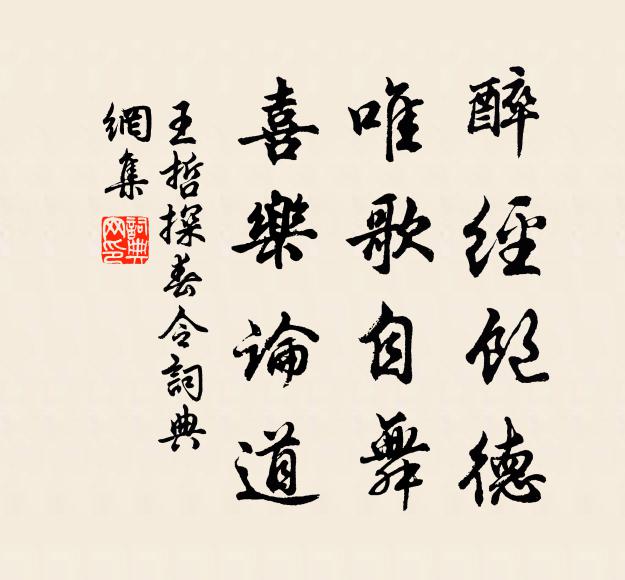 醉經飽德
唯歌自舞
喜樂論道
王哲探春令詞典
網集
詞典
网印